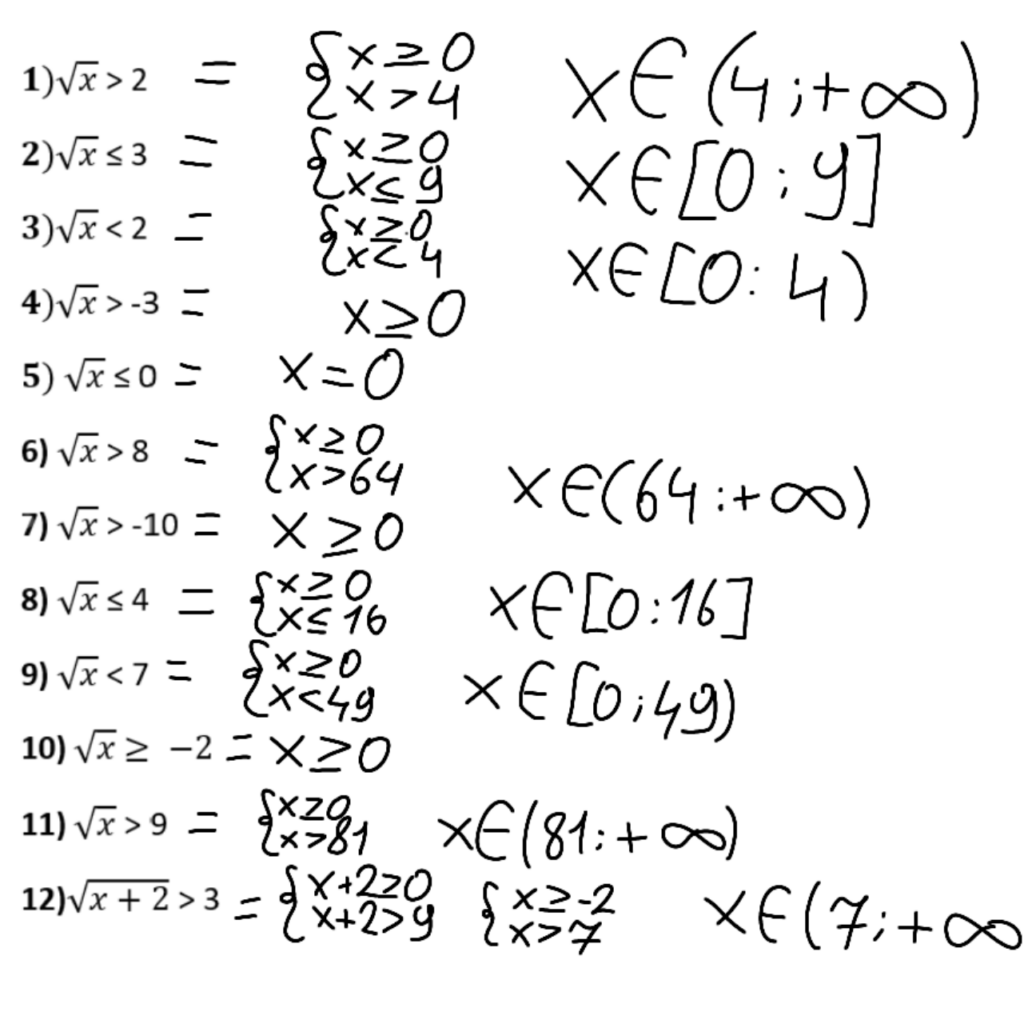 1)√x > 2 = {x ≥ 0 x > 4 x∈(4;+∞)
2)√x ≤ 3 = {x ≥ 0 x ≤ 9 x∈[0;9]
3)√x < 2 = {x ≥ 0 x < 4 x∈[0:4)
4)√x > -3 = x ≥ 0
5) √x ≤ 0 = x = 0
6) √x > 8 = {x ≥ 0 x > 64 x∈(64;+∞)
7) √x > -10 = x ≥ 0
8) √x ≤ 4 = {x ≥ 0 x ≤ 16 x∈[0:16]
9) √x < 7 = {x ≥ 0 x < 49 x∈[0;49)
10) √x ≥ −2 = x ≥ 0
11) √x > 9 = {x ≥ 0 x > 81 x∈(81;+∞)
12)√(x + 2) > 3 = {x+2 ≥ 0 x+2 > 9 {x ≥ -2 x > 7 x∈(7;+∞